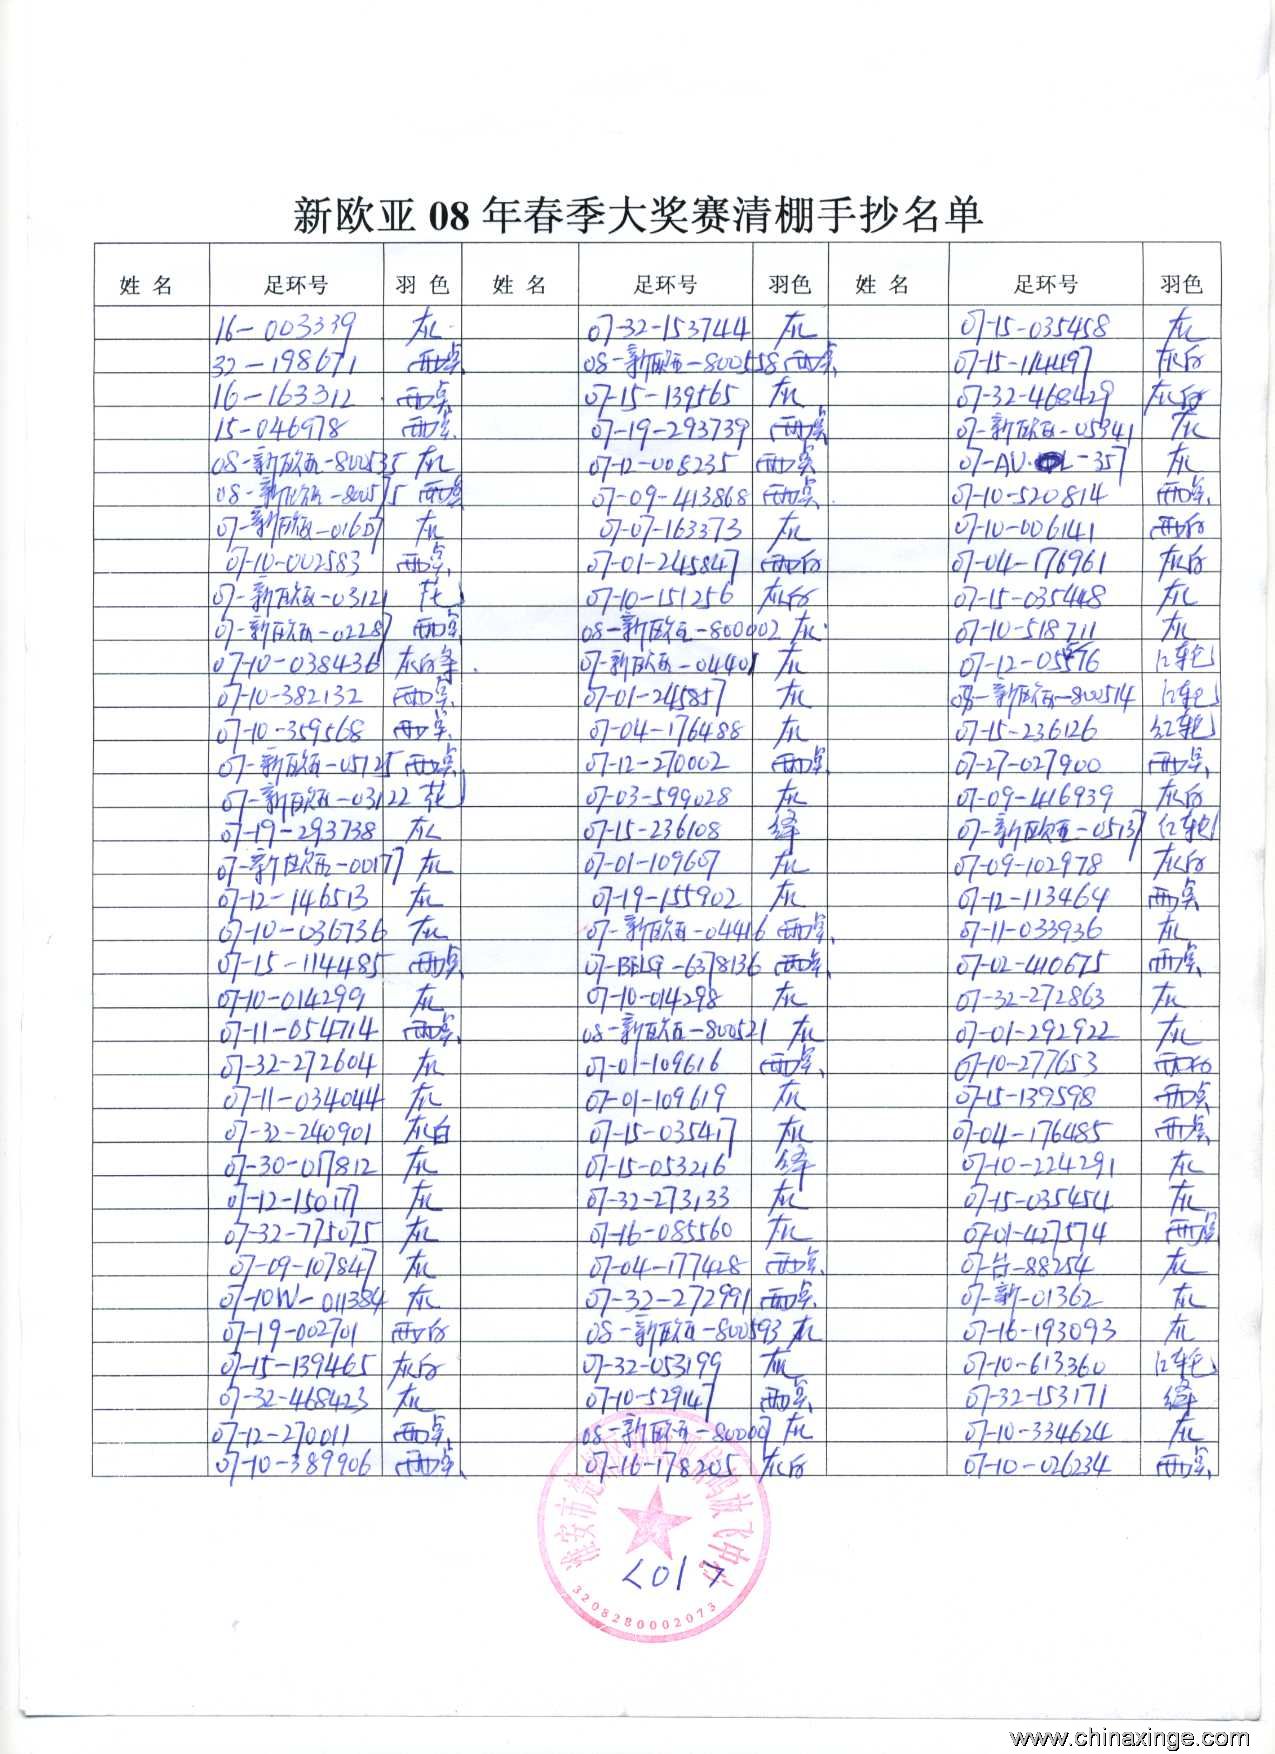 新欧亚 08 年春季大奖赛清棚手抄名单
姓 名 足环号 羽 色 姓 名 足环号 羽色 姓 名 足环号 羽色
16-003339 灰 07-32-153744 灰 07-15-035458 灰
32-198671 雨点 08-新欧亚-800558 雨点 07-15-114497 灰白
16-163312 雨点 07-15-139565 灰 07-32-468429 灰白
15-046978 雨点 07-19-293739 雨点 07-新欧亚-05341 灰
08-新欧亚-800535 灰 07-12-008235 雨点 07-AU. L-357 灰
08-新欧亚-800575 雨点 07-09-413868 雨点 07-10-520814 雨点
07-新欧亚-01607 灰 07-07-163373 灰 07-10-006141 雨白
07-10-002583 雨点 07-01-245847 雨白 07-04-176961 灰白
07-新欧亚-03121 花 07-10-151256 灰白 07-15-035448 灰
07-新欧亚-02287 雨点 08-新欧亚-800002 灰 07-10-518711 灰
07-10-038436 灰白条 07-新欧亚-04401 灰 07-12-05576 红轮
07-10-382132 雨点 07-01-245857 灰 08-新欧亚-800514 红轮
07-10-359568 雨点 07-04-176488 灰 07-15-236126 红轮
07-新欧亚-05125 雨点 07-12-270002 雨点 07-27-027900 雨点
07-新欧亚-03122 花 07-03-599028 灰 07-09-416939 灰白
07-19-293738 灰 07-15-236108 绛 07-新欧亚-05137 红轮
07-新欧亚-00177 灰 07-01-109607 灰 07-09-102978 灰白
07-12-146513 灰 07-19-155902 灰 07-12-113464 雨点
07-10-036736 灰 07-新欧亚-04416 雨点 07-11-033936 灰
07-15-114485 雨点 07-BELG-6378136 雨点 07-02-410675 雨点
07-10-014299 灰 07-10-014298 灰 07-32-272863 灰
07-11-054714 雨点 08-新欧亚-800521 灰 07-01-292922 灰
07-32-272604 灰 07-01-109616 雨点 07-10-277653 雨白
07-11-034044 灰 07-01-109619 灰 07-15-139598 雨点
07-32-240901 灰白 07-15-035417 灰 07-04-176485 雨点
07-30-017812 灰 07-15-053216 绛 07-10-224291 灰
07-12-150177 灰 07-32-273133 灰 07-15-035454 灰
07-32-775075 灰 07-16-085560 灰 07-01-427574 雨点
07-09-107847 灰 07-04-177428 雨点 07-台-88254 灰
07-10W-011384 灰 07-32-272991 雨点 07-新-01362 灰
07-19-002701 雨白 08-新欧亚-800593 灰 07-16-193093 灰
07-15-139465 灰白 07-32-053199 灰 07-10-613360 红轮
07-32-468423 灰 07-10-529147 雨点 07-32-153171 绛
07-12-270011 雨点 08-新欧亚-80007 灰 07-10-334624 灰
07-10-389906 雨点 07-16-178205 灰白 07-10-026234 雨点
淮安市楚 鸽放飞中心
<017
3208280002073
www.chinaxinge.com